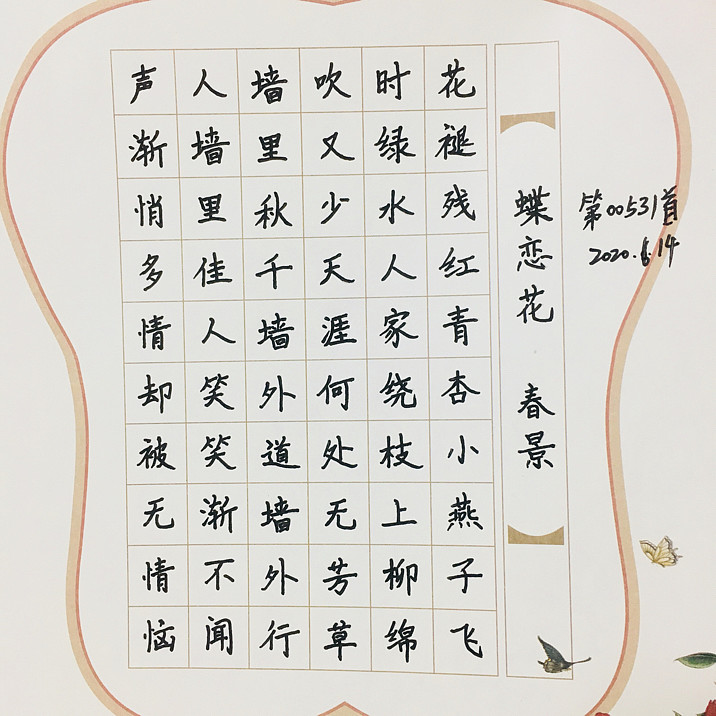 第00531首
2020.6.14
蝶恋花 春景
花褪残红青杏小燕子飞
时绿水人家绕枝上柳绵
吹又少天涯何处无芳草
墙里秋千墙外道墙外行
人墙里佳人笑笑渐不闻
声渐悄多情却被无情恼